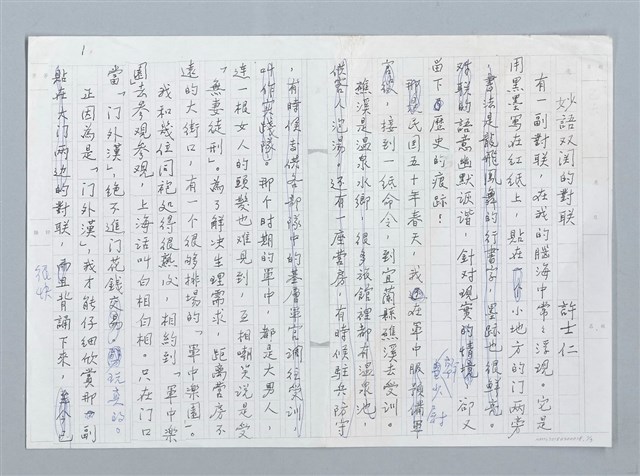 1
妙語双関的對联
許士仁
有一副對联，在我的腦海中常常浮現。它是
用黑墨写在红纸上，貼在一个小地方的門两旁
，書法是龍飛鳳舞的行書字，墨跡也很鮮亮。
对联的語意幽默诙谐，針对現实的情境，卻又
留下歷史的痕跡！
民国五十年春天，我在軍中服預備軍
官役，接到一纸命令，到宜蘭縣礁溪去受訓。
礁溪是温泉水鄉，很多旅館裡都有温泉池，
供客人泡湯。还有一座营房，有時候駐兵防守
，有時候召集各部隊中的基層軍官調往受訓
，那个时期的軍中，都是大男人，
連一根女人的頭髮也难見到，互相嘲笑説是受
「無妻徒刑」。為了解決生理需求，距離营房不
遠的大街口，有一个很够排場的「軍中樂園」。
我和幾位同袍处得很熟後，相約到「軍中樂
園」去參观參观，上海话叫白相白相。只在門口
當「門外漢」，绝不進门花錢交易。玩真的。
正因為是「門外漢」，我才能仔细欣賞那副
貼在大门两边的對联，而且背誦下來，至今已
很快